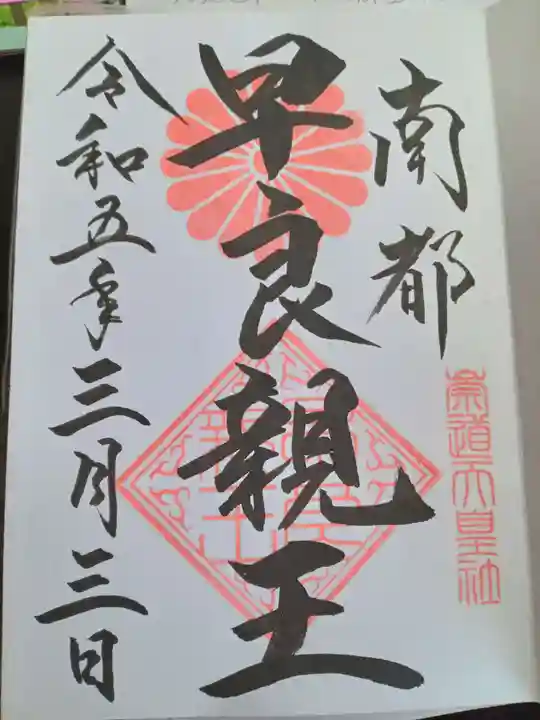 南都
崇道天皇社
早良親王
令和五年三月三日